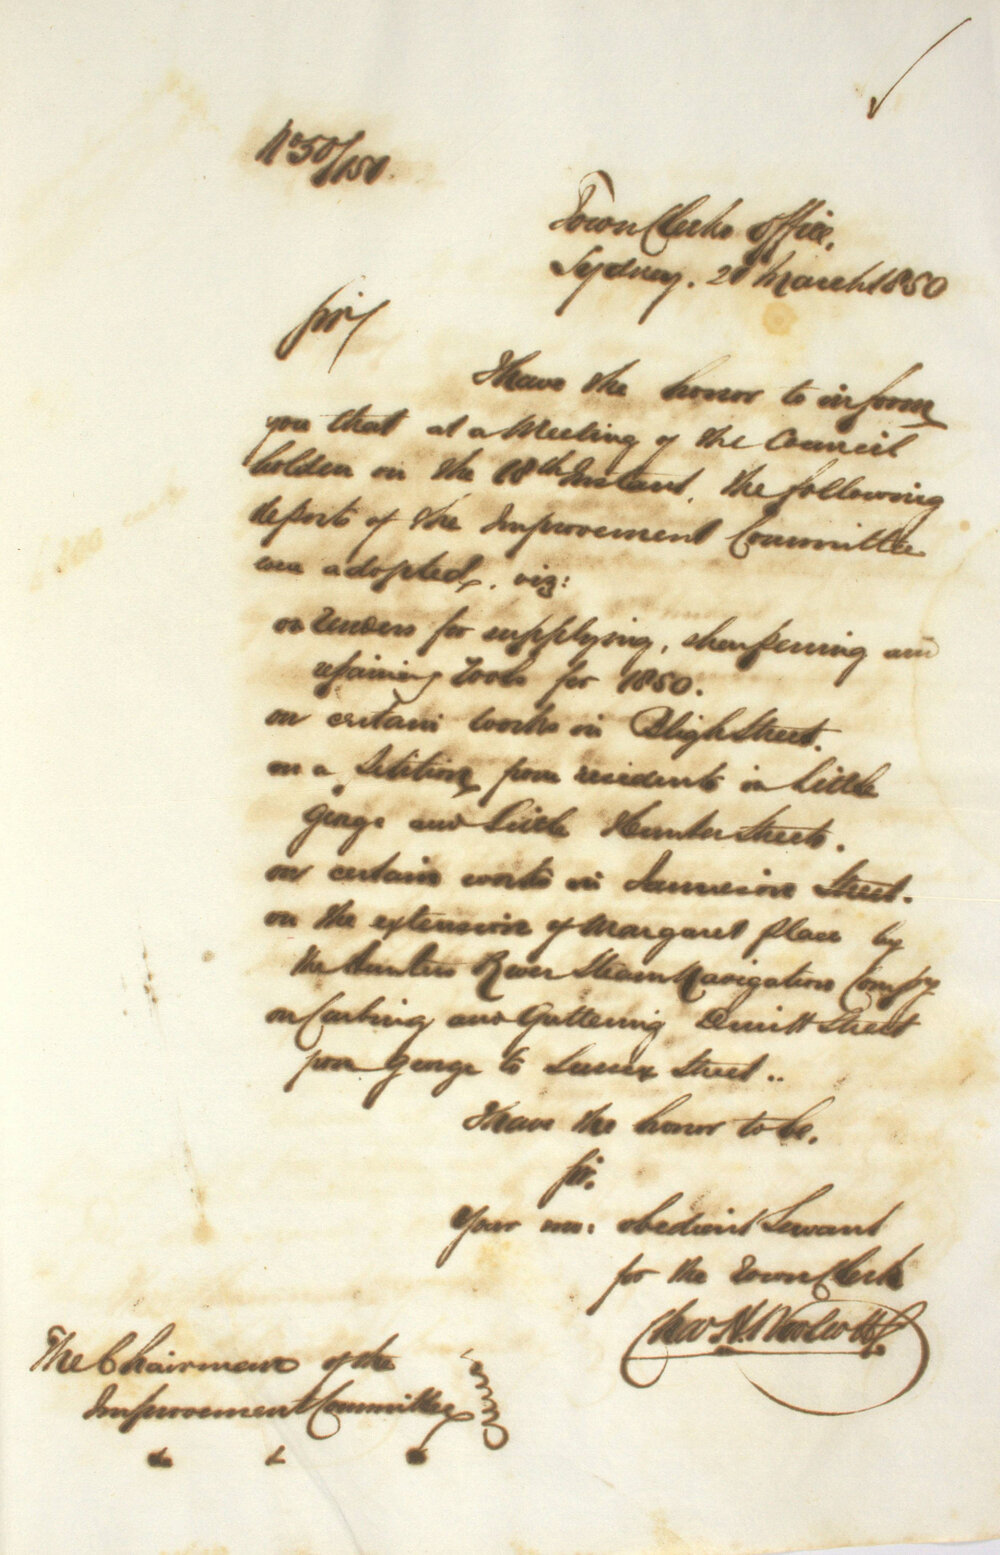 No 50/150.
Town Clerks Office,
Sydney. 20 March 1850
Sir,
I have the honor to inform
you that at a Meeting of the Council
holden on the 18th Instant, the following
reports of the Improvement Committee
were adopted, viz:
on Tenders for supplying, sharpening and
repairing Tools for 1850.
on certain works in Bligh Street.
on a Petition from residents in Little
George and Little Hunter Streets.
on certain works in Jamieson Street.
on the extension of Margaret Place by
the Hunters River Steam Navigation Compy
on Curbing and Guttering Street
from George to Sussex Street..
I have the honor to be,
Sir,
Your mo: obedient Servant
for the Town Clerk
Chas H. Woolcott
The Chairman of the
Improvement Committee
&c &c